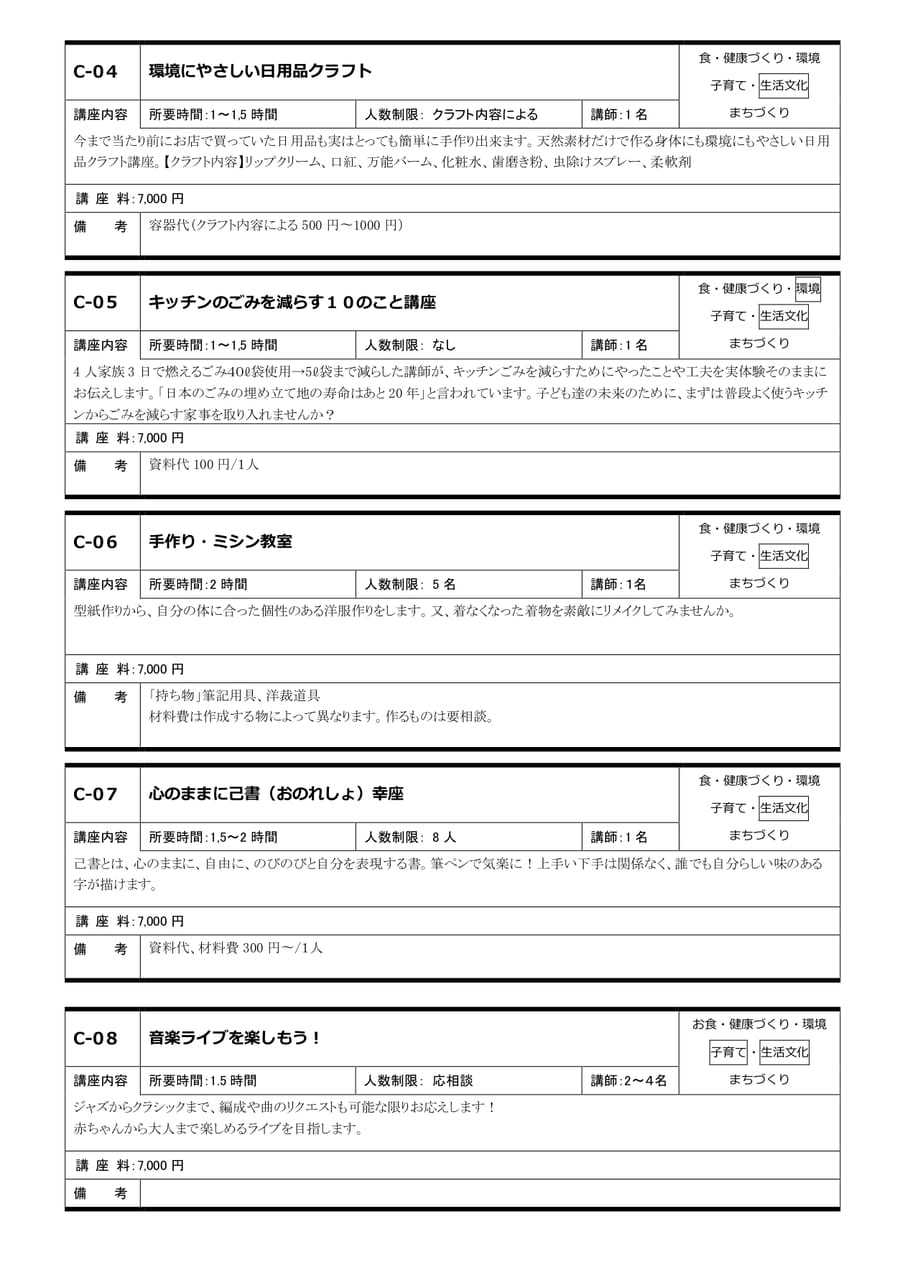 C-04
環境にやさしい日用品クラフト
食・健康づくり・環境
子育て・生活文化
まちづくり
講座内容 所要時間：1～1,5 時間 人数制限： クラフト内容による 講師：1 名
今まで当たり前にお店で買っていた日用品も実はとっても簡単に手作り出来ます。天然素材だけで作る身体にも環境にもやさしい日用
品クラフト講座。【クラフト内容】リップクリーム、口紅、万能バーム、化粧水、歯磨き粉、虫除けスプレー、柔軟剤
講 座 料：7,000 円
備 考 容器代（クラフト内容による 500 円～1000 円）
C-05
キッチンのごみを減らす１０のこと講座
食・健康づくり・環境
子育て・生活文化
まちづくり
講座内容 所要時間：1～1,5 時間 人数制限： なし 講師：1 名
4 人家族 3 日で燃えるごみ40ℓ袋使用→5ℓ袋まで減らした講師が、キッチンごみを減らすためにやったことや工夫を実体験そのままに
お伝えします。「日本のごみの埋め立て地の寿命はあと 20 年」と言われています。子ども達の未来のために、まずは普段よく使うキッチ
ンからごみを減らす家事を取り入れませんか？
講 座 料：7,000 円
備 考 資料代 100 円/1人
C-06
手作り・ミシン教室
食・健康づくり・環境
子育て・生活文化
まちづくり
講座内容 所要時間：2 時間 人数制限： 5 名 講師：1名
型紙作りから、自分の体に合った個性のある洋服作りをします。又、着なくなった着物を素敵にリメイクしてみませんか。
講 座 料：7,000 円
備 考 「持ち物」筆記用具、洋裁道具
材料費は作成する物によって異なります。作るものは要相談。
C-07
心のままに己書（おのれしょ）幸座
食・健康づくり・環境
子育て・生活文化
まちづくり
講座内容 所要時間：1.5～2 時間 人数制限： 8 人 講師：1 名
己書とは、心のままに、自由に、のびのびと自分を表現する書。筆ペンで気楽に！上手い下手は関係なく、誰でも自分らしい味のある
字が描けます。
講 座 料：7,000 円
備 考 資料代、材料費 300 円～/1人
C-08
音楽ライブを楽しもう！
お食・健康づくり・環境
子育て・生活文化
まちづくり
講座内容 所要時間：1.5 時間 人数制限： 応相談 講師：2～4名
ジャズからクラシックまで、編成や曲のリクエストも可能な限りお応えします！
赤ちゃんから大人まで楽しめるライブを目指します。
講 座 料：7,000 円
備 考